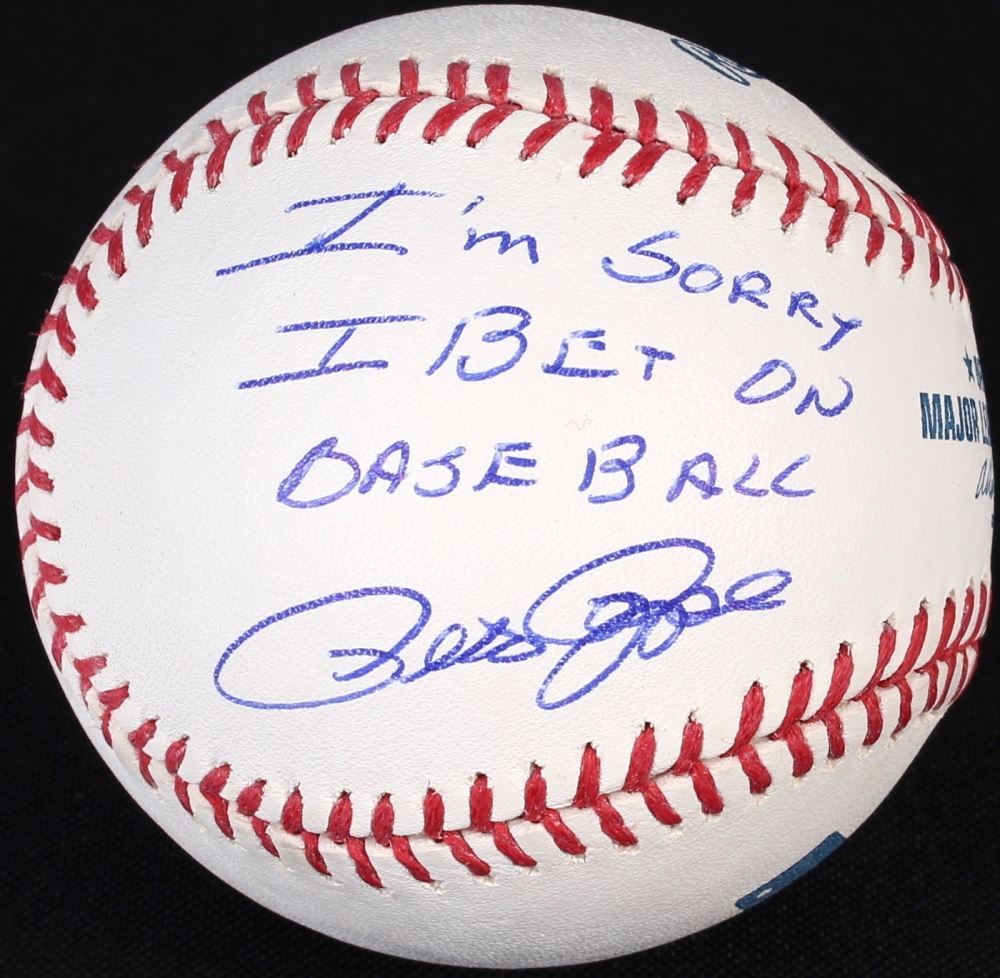 I'm SORRY
I BET ON
BASEBALL
Pete Rose
MAJOR